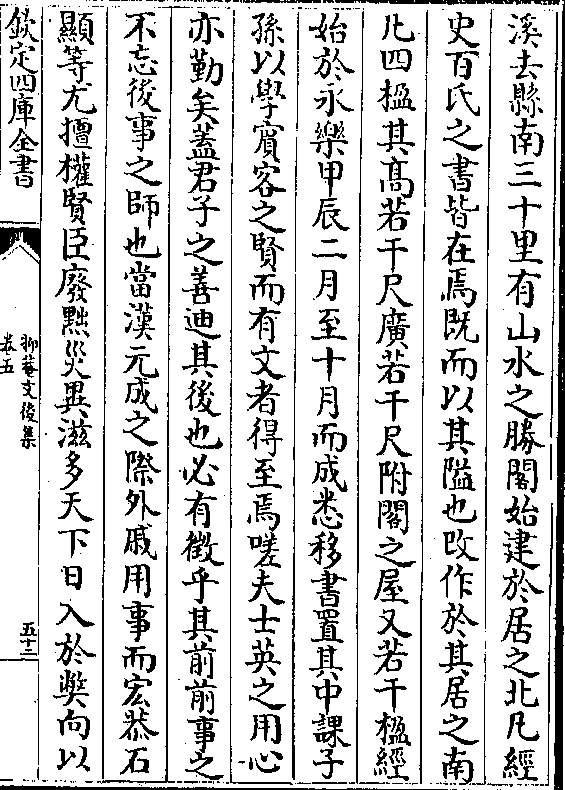 溪去縣南三十里有山水之勝閣始建於居之北凡經
史百氏之書皆在焉既而以其隘也改作於其居之南
凡四楹其髙若干尺廣若干尺附閣之屋又若干楹經
始於永樂甲辰二月至十月而成悉移書置其中課子
孫以學賓客之賢而有文者得至焉嗟夫士英之用心
亦勤矣蓋君子之善迪其後也必有徵乎其前前事之
不忘後事之師也當漢元成之際外戚用事而宏恭石
顯等尤擅權賢臣廢黜災異滋多天下日入於弊向以
欽定四庫全書
抑菴文後集
卷五
五十二